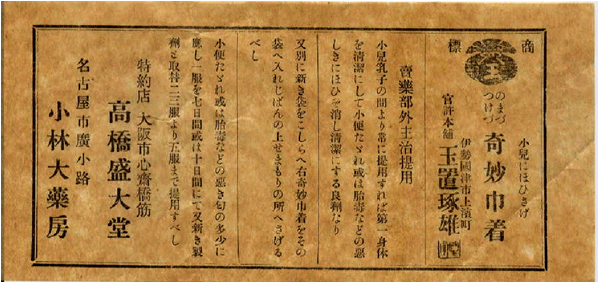 商標
小兒にほひさげ
のまづ
つけづ
奇妙巾着
伊勢國津市上濱町
官許本舖 玉置琢雄
賣藥部外主治提用
小兒乳子の間より常に提用すれば第一身体
を清潔にして小便たゞれ或は胎毒などの惡
しきにほひを消し清潔にする良劑なり
又別に新き袋をこしらへ右奇妙巾着をその
袋へ入れじばんの上せまもりの所へさげる
べし
小便たゞれ或は胎毒などの惡き匂の多少に
應し一服を七日間或は十日間にて又新き製
劑と取替二三服より五服まで提用すべし
特約店 大阪市心齋橋筋
高橋盛大堂
名古屋市廣小路
小林大藥房